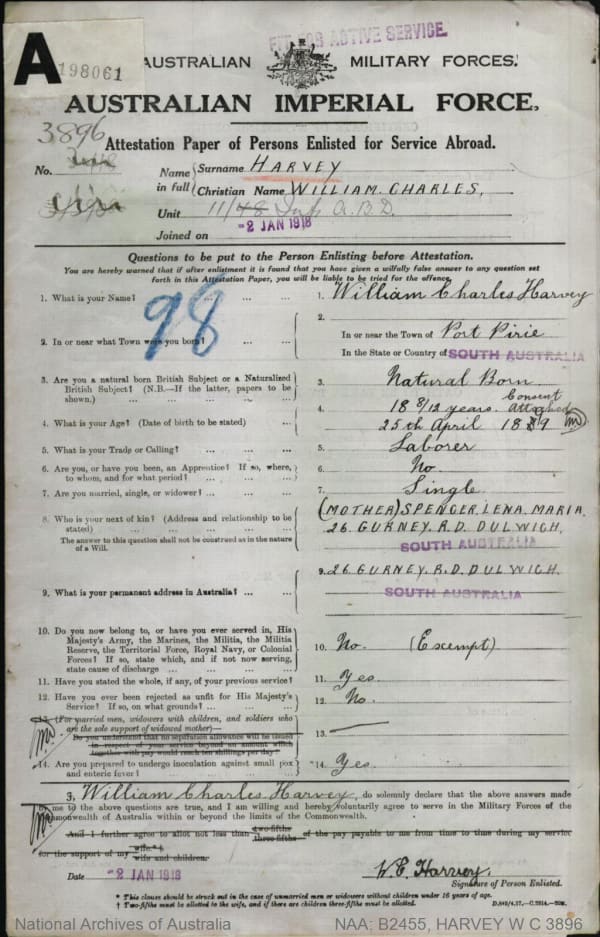 FIT FOR ACTIVE SERVICE.
A
198061
AUSTRALIAN MILITARY FORCES.
AUSTRALIAN IMPERIAL FORCE.
3896
Attestation Paper of Persons Enlisted for Service Abroad.
No.
Name in full
Surname HARVEY
Christian Name WILLIAM. CHARLES.
Unit 11/48 Inf A.B.D.
Joined on -2 JAN 1918
Questions to be put to the Person Enlisting before Attestation.
You are hereby warned that if after enlistment it is found that you have given a wilfully false answer to any question set
forth in this Attestation Paper, you will be liable to be tried for the offence.
98
1. What is your Name? ... ... ... 1. William Charles Harvey
2. In or near what Town were you born? ... ... 2. In or near the Town of Port Pirie
In the State or Country of SOUTH AUSTRALIA
3. Are you a natural born British Subject or a Naturalized
British Subject? (N.B.—If the latter, papers to be
shown.) ... ... ... ... 3. Natural Born
4. What is your Age? (Date of birth to be stated) ... 4. 18 8/12 years. Consent Attached
25th April 1899
5. What is your Trade or Calling? ... ... ... 5. Laborer
6. Are you, or have you been, an Apprentice? If so, where,
to whom, and for what period? ... ... ... 6. No
7. Are you married, single, or widower? ... ... 7. Single
8. Who is your next of kin? (Address and relationship to be
stated) ... ... ... ...
The answer to this question shall not be construed as in the nature
of a Will.
(MOTHER) SPENCER, LENA. MARIA.
26. GURNEY. R.D. DULWICH.
SOUTH AUSTRALIA
9. What is your permanent address in Australia? ... ... 9. 26. GURNEY. R.D. DULWICH.
SOUTH AUSTRALIA
10. Do you now belong to, or have you ever served in, His
Majesty's Army, the Marines, the Militia, the Militia
Reserve, the Territorial Force, Royal Navy, or Colonial
Forces? If so, state which, and if not now serving,
state cause of discharge ... ... ... ... 10. No. (Exempt)
11. Have you stated the whole, if any, of your previous service? 11. Yes
12. Have you ever been rejected as unfit for His Majesty's
Service? If so, on what grounds? ... ... 12. No.
13. (For married men, widowers with children, and soldiers who
are the sole support of widowed mother)—
Do you understand that no separation allowance will be issued
in respect of your service beyond an amount which
together with pay would reach ten shillings per day? 13. —
14. Are you prepared to undergo inoculation against small pox
and enteric fever? ... ... ... ... 14. Yes.
I, William Charles Harvey, do solemnly declare that the above answers made
by me to the above questions are true, and I am willing and hereby voluntarily agree to serve in the Military Forces of the
Commonwealth of Australia within or beyond the limits of the Commonwealth.
* And I further agree to allot not less than two-fifths three-fifths of the pay payable to me from time to time during my service
for the support of my wife* † wife and children.
Date -2 JAN 1918
W.C. Harvey.
Signature of Person Enlisted.
* This clause should be struck out in the case of unmarried men or widowers without children under 16 years of age.
† Two-fifths must be allotted to the wife, and if there are children three-fifths must be allotted.
National Archives of Australia
NAA: B2455, HARVEY W C 3896